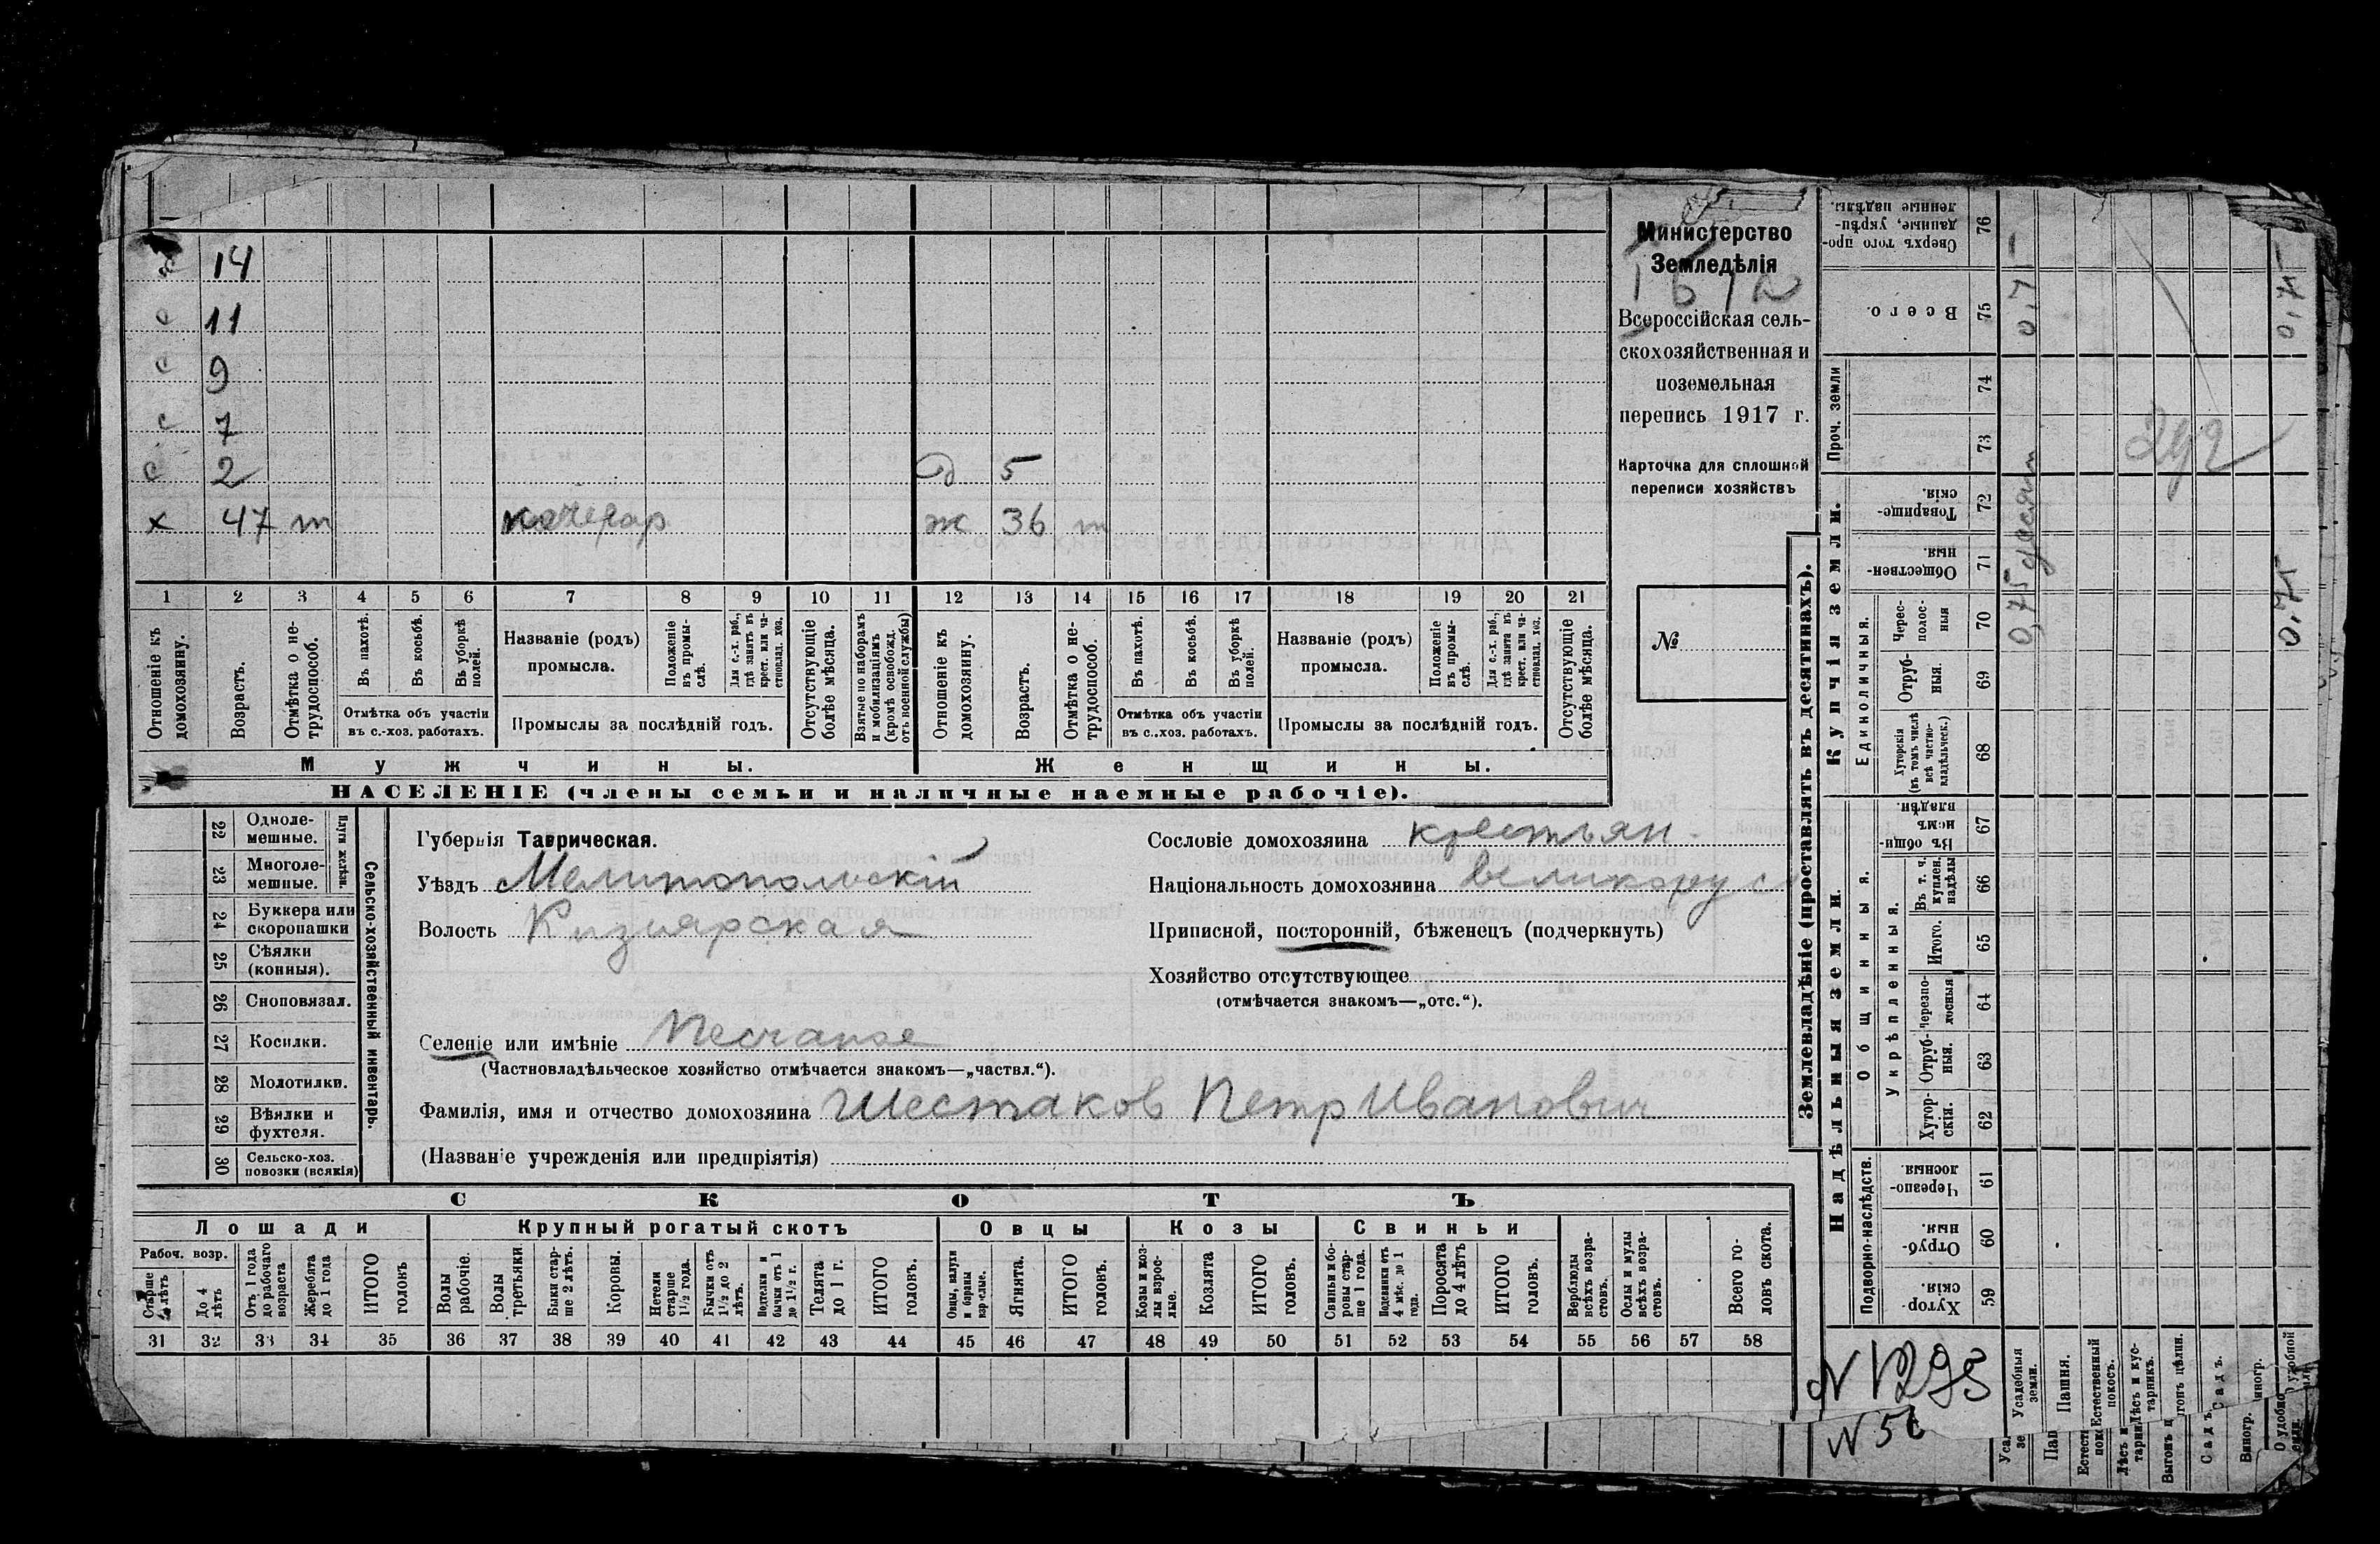 с 14
с 11
с 9
с 7
с 2 д 5
х 47 т кочегар ж 36 т
1 2 3 4 5 6 7 8 9 10 11 12 13 14 15 16 17 18 19 20 21
Отношеніе къ домохозяину.
Возрастъ.
Отмѣтка о не-трудоспособ.
Въ пахотѣ.
Въ косьбѣ.
Въ уборкѣ полей.
Отмѣтка объ участіи въ с.-хоз. работахъ.
Названіе (родъ) промысла.
Положеніе въ промы-слѣ.
Для с.-х. раб., гдѣ занятъ въ крест. или ча-стновлад. хоз.
Промыслы за послѣдній годъ.
Отсутствующіе болѣе мѣсяца.
Взятые по наборамъ и мобилизаціямъ (кромѣ освобожд. отъ военной службы)
Отношеніе къ домохозяину.
Возрастъ.
Отмѣтка о не-трудоспособ.
Въ пахотѣ.
Въ косьбѣ.
Въ уборкѣ полей.
Отмѣтка объ участіи въ с..хоз. работахъ.
Названіе (родъ) промысла.
Положеніе въ промы-слѣ.
Для с.-х. раб., гдѣ занята въ крест. или ча-стновлад. хоз.
Промыслы за послѣдній годъ.
Отсутствующіе болѣе мѣсяца.
Мужчины. Женщины.
НАСЕЛЕНІЕ (члены семьи и наличные наемные рабочіе).
Министерство
Земледѣлія
Всероссійская сель-
скохозяйственная и
поземельная
перепись 1917 г.
Карточка для сплошной
переписи хозяйствъ
№
22 Одноле-мешные.
23 Многоле-мешные.
Плуги желѣзн.
24 Буккера или скоропашки
25 Сѣялки (конныя).
26 Сноповязал.
27 Косилки.
28 Молотилки.
29 Вѣялки и фухтеля.
30 Сельско-хоз. повозки (всякія)
Сельско-хозяйственный инвентарь.
Губернія Таврическая.
Уѣздъ Мелитопольскій
Волость Кизіярская
Сословіе домохозяина крестьян.
Національность домохозяина великорус
Приписной, посторонній, бѣженецъ (подчеркнуть)
Хозяйство отсутствующее
(отмѣчается знакомъ—„отс.“).
Селеніе или имѣніе Песчаное
(Частновладѣльческое хозяйство отмѣчается знакомъ—„частвл.“).
Фамилія, имя и отчество домохозяина Шестаков Петр Иванович
(Названіе учрежденія или предпріятія)
СКОТЪ
Лошади Крупный рогатый скотъ Овцы Козы Свиньи
Рабоч. возр.
Старше 4 лѣтъ
До 4 лѣтъ
Отъ 1 года до рабочаго возраста
Жеребята до 1 года
ИТОГО головъ
Волы рабочіе.
Волы третьяки
Быки стар-ше 2 лѣтъ.
Коровы.
Нетели старше 1½ года.
Бычки отъ 1½ до 2 лѣтъ.
Подтелки и бычки отъ 1 до 1½ г.
Телята до 1 г.
ИТОГО головъ.
Овцы, валухи и бараны взрослые.
Ягнята.
ИТОГО головъ.
Козы и коз-лы взрос-лые.
Козлята
ИТОГО головъ.
Свиньи и бо-ровы стар-ше 1 года.
Подсвинки отъ 4 мѣс. до 1 года.
Поросята до 4 лѣтъ
ИТОГО головъ.
Верблюды всѣхъ возра-стовъ.
Ослы и мулы всѣхъ возра-стовъ.
Всего го-ловъ скота.
31 32 33 34 35 36 37 38 39 40 41 42 43 44 45 46 47 48 49 50 51 52 53 54 55 56 57 58
Землевладѣніе (проставлять въ десятинахъ).
Надѣльныя земли. Купчія земли. Проч. земли
Подворно-наслѣдств. Общинныя. Единоличныя.
Укрѣпленныя.
Хутор-скія. 59
Отруб-ныя. 60
Черезпо-лосныя. 61
Хутор-скія. 62
Отруб-ныя. 63
Черезпо-лосныя 64
Итого. 65
Въ т. ч. куплен. надѣлы 66
Въ общи-номъ владѣн. 67
Хуторскія (въ томъ числѣ всѣ частно-владѣльческ.) 68
Отруб-ныя. 69
Черес-полос-ныя 70
Обществен-ныя. 71
Товарище-скія. 72
73
74
Всего. 75
Сверхъ того про-данные, укрѣп-ленные надѣлы. 76
0,75 десят
0,75
0,75
292
N 1293
N 56
Усадебныя земли.
Пашня.
Естественный покосъ.
Лѣсъ и кус-тарникъ.
Выгонъ
Садъ.
Виногр.